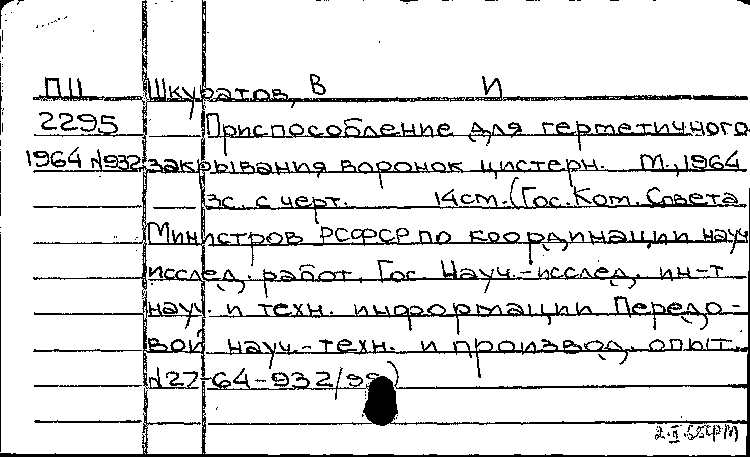 ПЦ Шкуратов, В И
2295 Приспособление для герметичного
1964 №932 закрывания воронок цистерн. М., 1964
3с. с черт. 14см. (Гос. Ком. Совета
Министров РСФСР по координации науч
исслед. работ. Гос. Науч.-исслед. ин-т
науч. и техн. информации Передо-
вой науч.-техн. и производ. опыт.
№27-64-932/